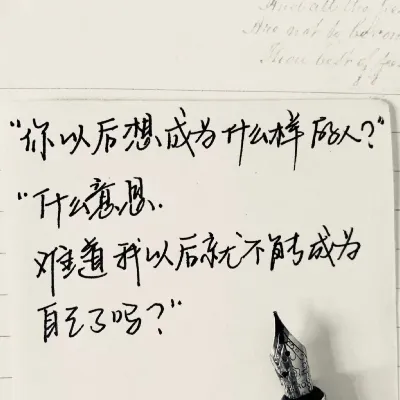 And all the
Are not to
"你以后想成为什么样的人?"
"什么意思.
难道我以后就不能成为
自己了吗?"